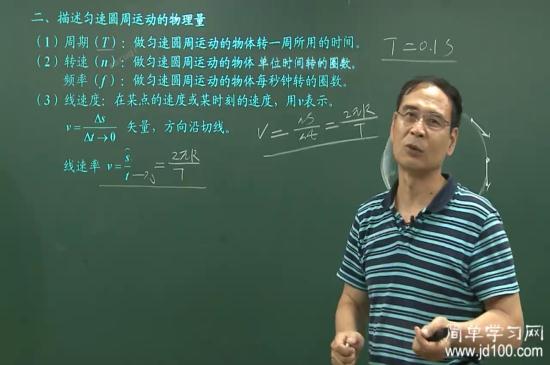 二、描述匀速圆周运动的物理量
(1) 周期(T):做匀速圆周运动的物体转一周所用的时间。
(2) 转速(n):做匀速圆周运动的物体单位时间转的圈数。
频率(f):做匀速圆周运动的物体每秒钟转的圈数。
(3) 线速度:在某点的速度或某时刻的速度,用v表示。
v=Δs/Δt→0 矢量,方向沿切线。
线速率 v=s/t→0 =2πR/T
T=0.1S
V=ΔS/Δt=2πR/T
简单学习网
www.jd100.com